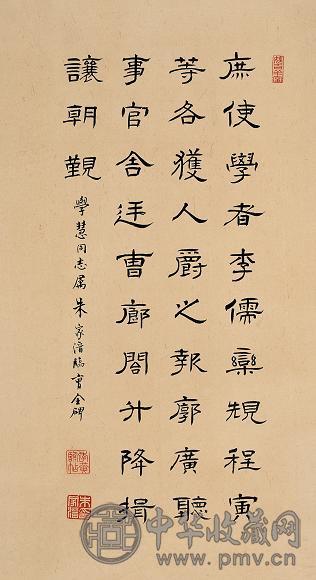 庶使學者李儒欒規程寅
等各獲人爵之報廓廣聽
事官舍廷曹廊閤升降揖
讓朝覲
學慧同志属 朱家溍臨曹全碑
中华收藏网
www.pmv.cn